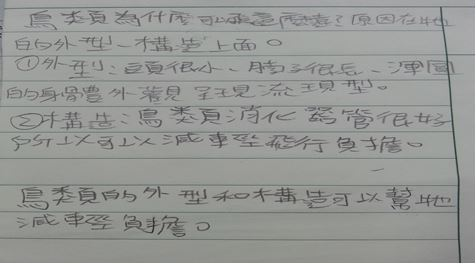 鳥類為什麼可以飛這麼喜？原因在牠
的外型、構造上面。
①外型：頭很小、脖子很長、渾圓
的身體外觀呈現流現型。
②構造：鳥類消化器管很好
所以可以減輕飛行負擔。
鳥類的外型和構造可以幫牠
減輕負擔。